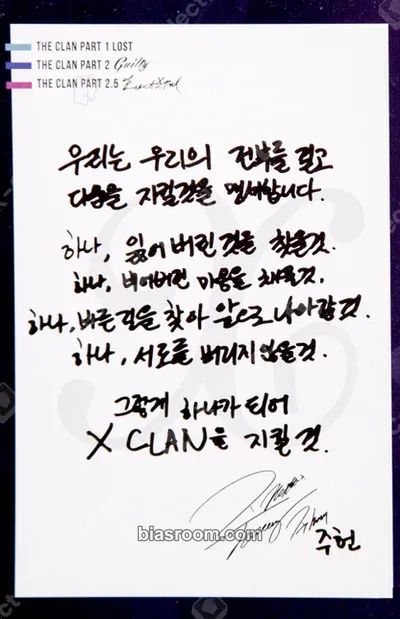 THE CLAN PART 1 LOST
THE CLAN PART 2 Guilty
THE CLAN PART 2.5
우리는 우리의 전부를 걸고
다음을 지킬것을 맹세합니다.
하나, 잃어버린것을 찾을것.
하나, 비어버린 마음을 채울것.
하나, 바른길을 찾아 앞으로 나아갈 것.
하나, 서로를 버리지 않을 것.
그렇게 하나가 되어
X CLAN을 지킬 것.
주헌
biasroom.com